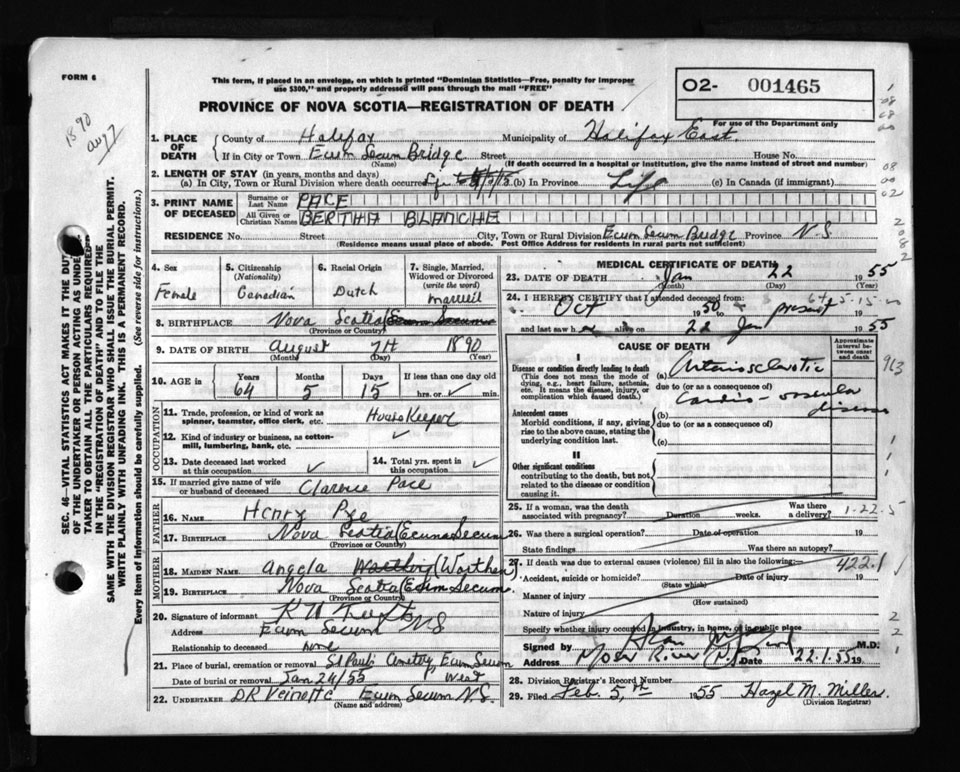 FORM 6
This form, if placed in an envelope, on which is printed "Dominion Statistics—Free, penalty for improper
use $300," and properly addressed will pass through the mail "FREE"
PROVINCE OF NOVA SCOTIA—REGISTRATION OF DEATH
O2- 001465
For use of the Department only
1890
aug 7
SEC. 46 VITAL STATISTICS ACT MAKES IT THE DUTY
OF THE UNDERTAKER OR PERSON ACTING AS UNDER-
TAKER TO OBTAIN ALL THE PARTICULARS REQUIRED
IN THE "REGISTRATION OF DEATH" AND TO FILE THE
SAME WITH THE DIVISION REGISTRAR WHO SHALL ISSUE THE BURIAL PERMIT.
WRITE PLAINLY WITH UNFADING INK. THIS IS A PERMANENT RECORD.
Every item of information should be carefully supplied. (See reverse side for instructions.)
1. PLACE OF DEATH
County of Halifax Municipality of Halifax East.
If in City or Town Ecum Secum Bridge Street House No.
(Name) (If death occurred in a hospital or institution, give the name instead of street and number)
2. LENGTH OF STAY (in years, months and days)
(a) In City, Town or Rural Division where death occurred (b) In Province Life (c) In Canada (if immigrant)
3. PRINT NAME OF DECEASED
Surname or Last Name PACE
All Given or Christian Names BERTHA BLANCHE
RESIDENCE No. Street City, Town or Rural Division Ecum Secum Bridge Province N.S
(Residence means usual place of abode. Post Office Address for residents in rural parts not sufficient)
4. Sex
Female
5. Citizenship (Nationality)
Canadian
6. Racial Origin
Dutch
7. Single, Married, Widowed or Divorced (write the word)
married
8. BIRTHPLACE Nova Scotia (Ecum Secum
(Province or Country)
9. DATE OF BIRTH August 7th 1890
(Month) (Day) (Year)
10. AGE in Years Months Days If less than one day old
64 5 15 hrs. or min.
OCCUPATION
11. Trade, profession, or kind of work as spinner, teamster, office clerk, etc. House Keeper
12. Kind of industry or business, as cotton-mill, lumbering, bank, etc.
13. Date deceased last worked at this occupation
14. Total yrs. spent in this occupation
15. If married give name of wife or husband of deceased Clarence Pace
FATHER
16. NAME Henry Pye
17. BIRTHPLACE Nova Scotia (Ecum Secum
(Province or Country)
MOTHER
18. MAIDEN NAME Angela (Worthen)
19. BIRTHPLACE Nova Scotia (Ecum Secum.
(Province or Country)
20. Signature of informant
Address Ecum Secum N.S
Relationship to deceased none
21. Place of burial, cremation or removal St Pauls Cemetery Ecum Secum
West
Date of burial or removal Jan 24/55
22. UNDERTAKER D R Veinotte Ecum Secum N.S.
(Name and address)
MEDICAL CERTIFICATE OF DEATH
23. DATE OF DEATH Jan 22 1955
(Month) (Day) (Year)
24. I HEREBY CERTIFY that I attended deceased from:
Oct 1950 to present 19
and last saw h er alive on 22 Jan 1955
64-5-15
CAUSE OF DEATH
Approximate interval between onset and death
I
Disease or condition directly leading to death
(This does not mean the mode of dying, e.g., heart failure, asthenia, etc. It means the disease, injury, or complication which caused death.)
(a) Arteriosclerotic
due to (or as a consequence of)
Cardio-vascular
disease
Antecedent causes
Morbid conditions, if any, giving rise to the above cause, stating the underlying condition last.
(b)
due to (or as a consequence of)
(c)
II
Other significant conditions
contributing to the death, but not related to the disease or condition causing it.
25. If a woman, was the death associated with pregnancy? Duration weeks. Was there a delivery?
1-22-5
26. Was there a surgical operation? Date of operation 19
State findings Was there an autopsy?
27. If death was due to external causes (violence) fill in also the following:
422.1
Accident, suicide or homicide? Date of injury 19
(State which)
Manner of injury
(How sustained)
Nature of injury
Specify whether injury occurred in industry, in home, or in public place
Signed by M.D.
Address Moser River N.S. Date 22.1.55 19
28. Division Registrar's Record Number
29. Filed Feb. 5, th 1955 Hazel M. Miller.
(Division Registrar)